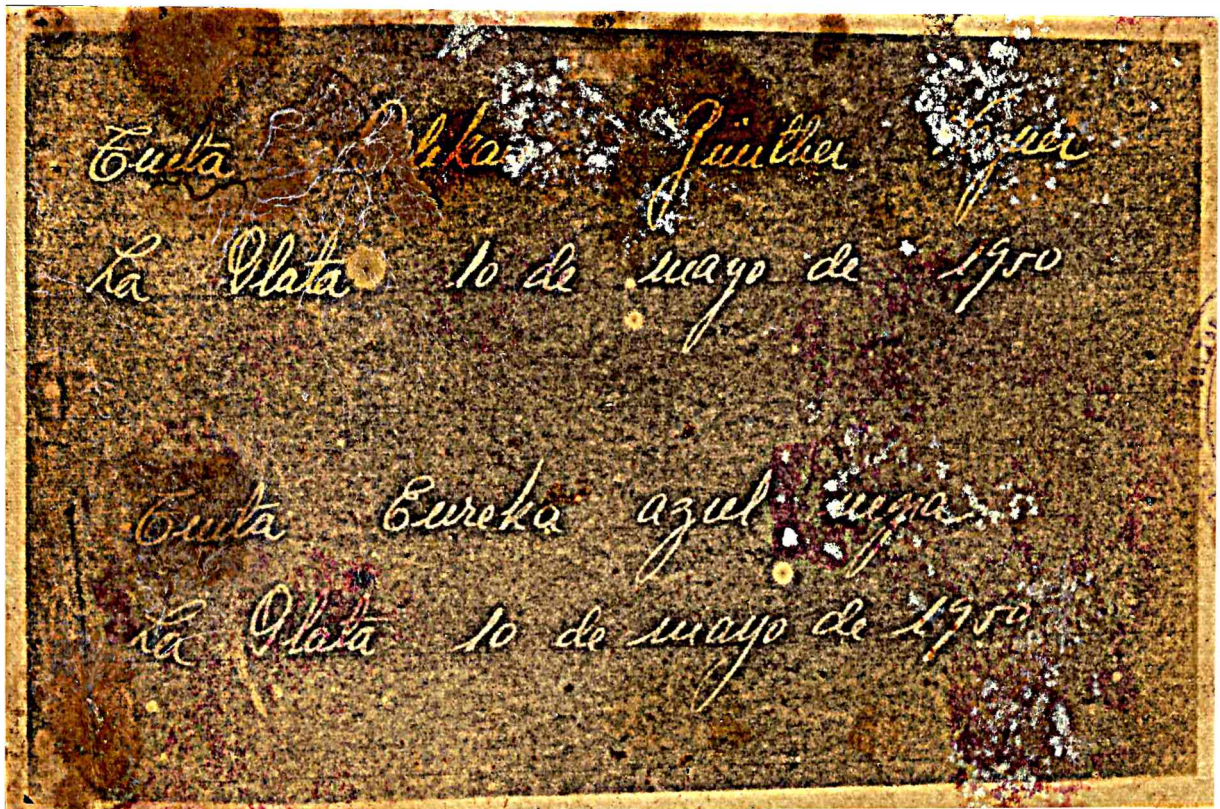 Tinta Pelikan Günther
La Plata 10 de mayo de 1950
Tinta Eureka azul negra
La Plata 10 de mayo de 1950